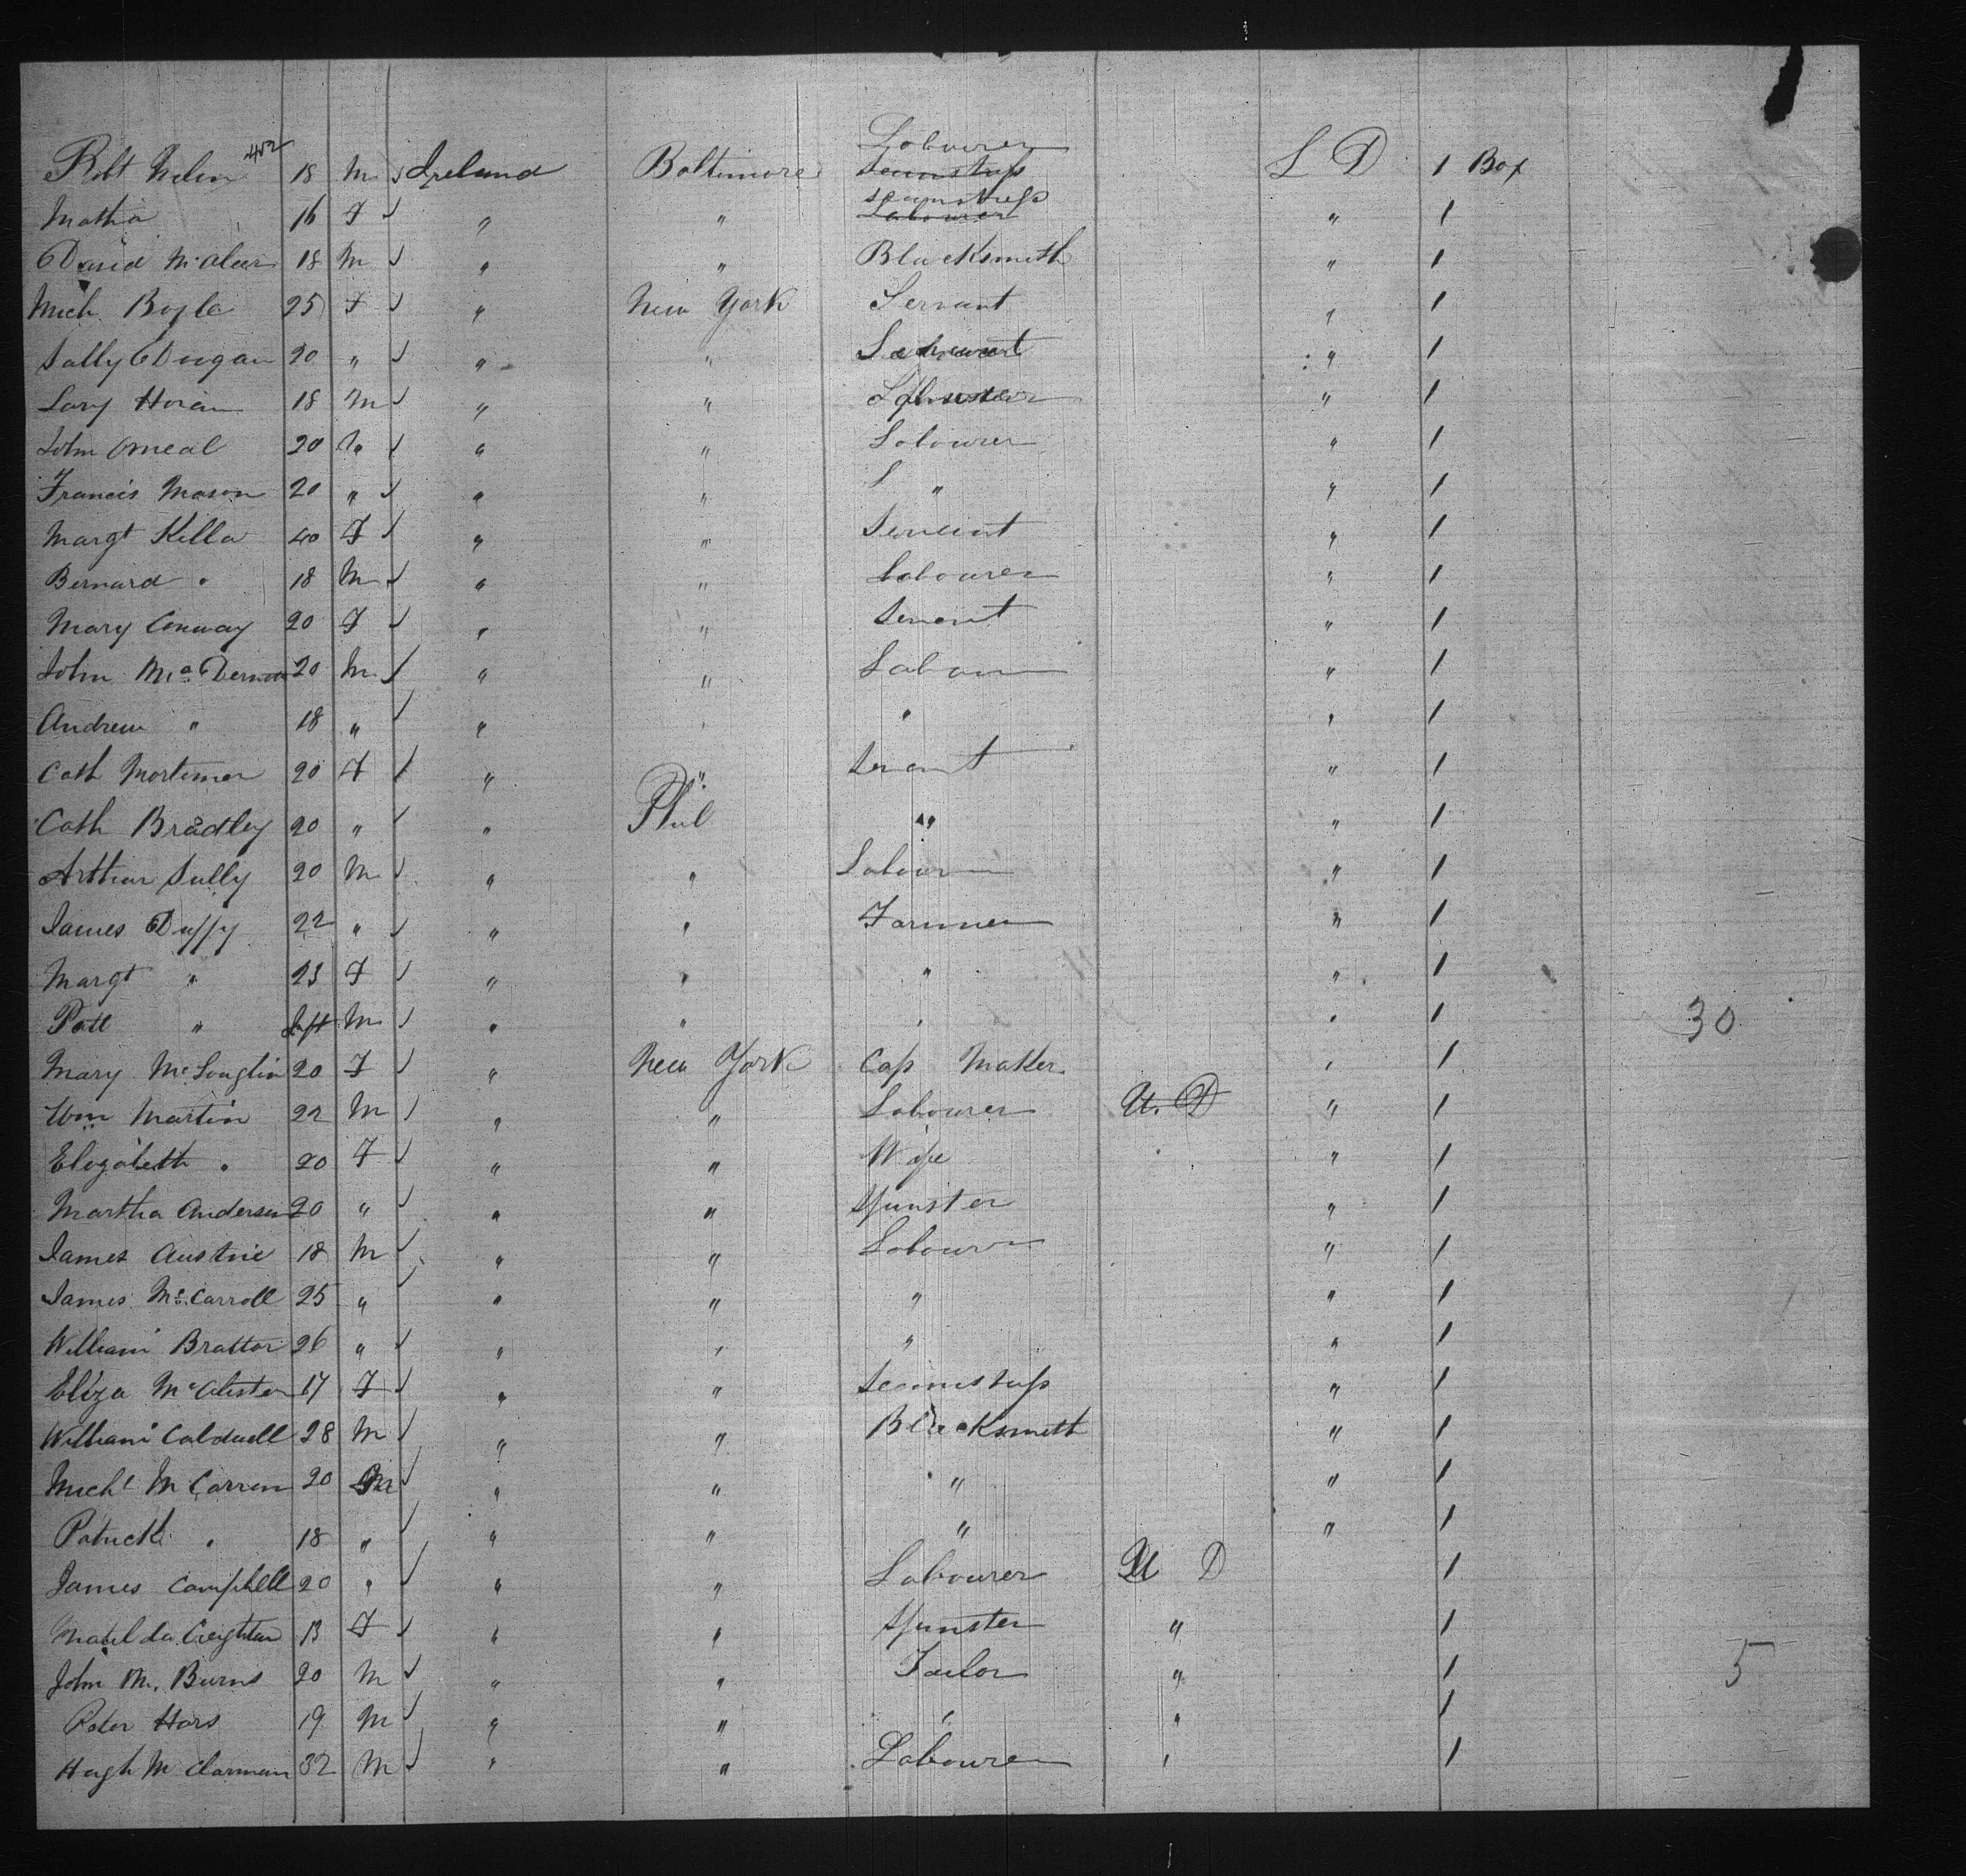 452
Labourer
Robt Nelson 18 M Ireland Baltimore Seamstress L D 1 Box
seamstress
Matha 16 F " " Labourer " 1
David McAleer 18 M " " Blacksmith " 1
Mich Boyle 25 F " New York Servant " 1
Sally Dugan 20 " " " Servant " 1
Lary Horan 18 M " " Labourer " 1
John Oneal 20 " " " Labourer " 1
Francis Mason 20 " " " L " " 1
Margt Kella 40 F " " Servant " 1
Bernard " 18 M " " Labourer " 1
Mary Conway 20 F " " Servant " 1
John McDermott 20 M " " Labour " 1
Andrew " 18 " " " " " 1
Cath Mortimer 20 F " " Servant " 1
Cath Bradley 20 " " Phil " " 1
Arthur Sully 20 M " " Labour " 1
James Duffy 22 " " " Farmer " 1
Margt " 23 F " " " " 1
Patt " Inft M " " " " 1 30
Mary McLouglin 20 F " New York Cap Maker " 1
Wm Martin 22 M " " Labourer U. D " 1
Elizabeth " 20 F " " Wife " 1
Martha Anderson 20 " " " Spinster " 1
James Austrie 18 M " " Labourer " 1
James McCarroll 25 " " " " " 1
William Brattor 26 " " " " " 1
Eliza McAlister 17 F " " Seamstress " 1
William Caldwell 28 M " " Blacksmith " 1
Michl McCarren 20 M " " " " 1
Patrick " 18 " " " " " 1
James Campbell 20 " " " Labourer U D 1
Matilda Creighton 13 F " " Spinster " 1
John M. Burns 20 M " " Tailor " 1 5
Peter Hars 19 M " " " " 1
Hugh McClarman 32 M " " Labourer " 1